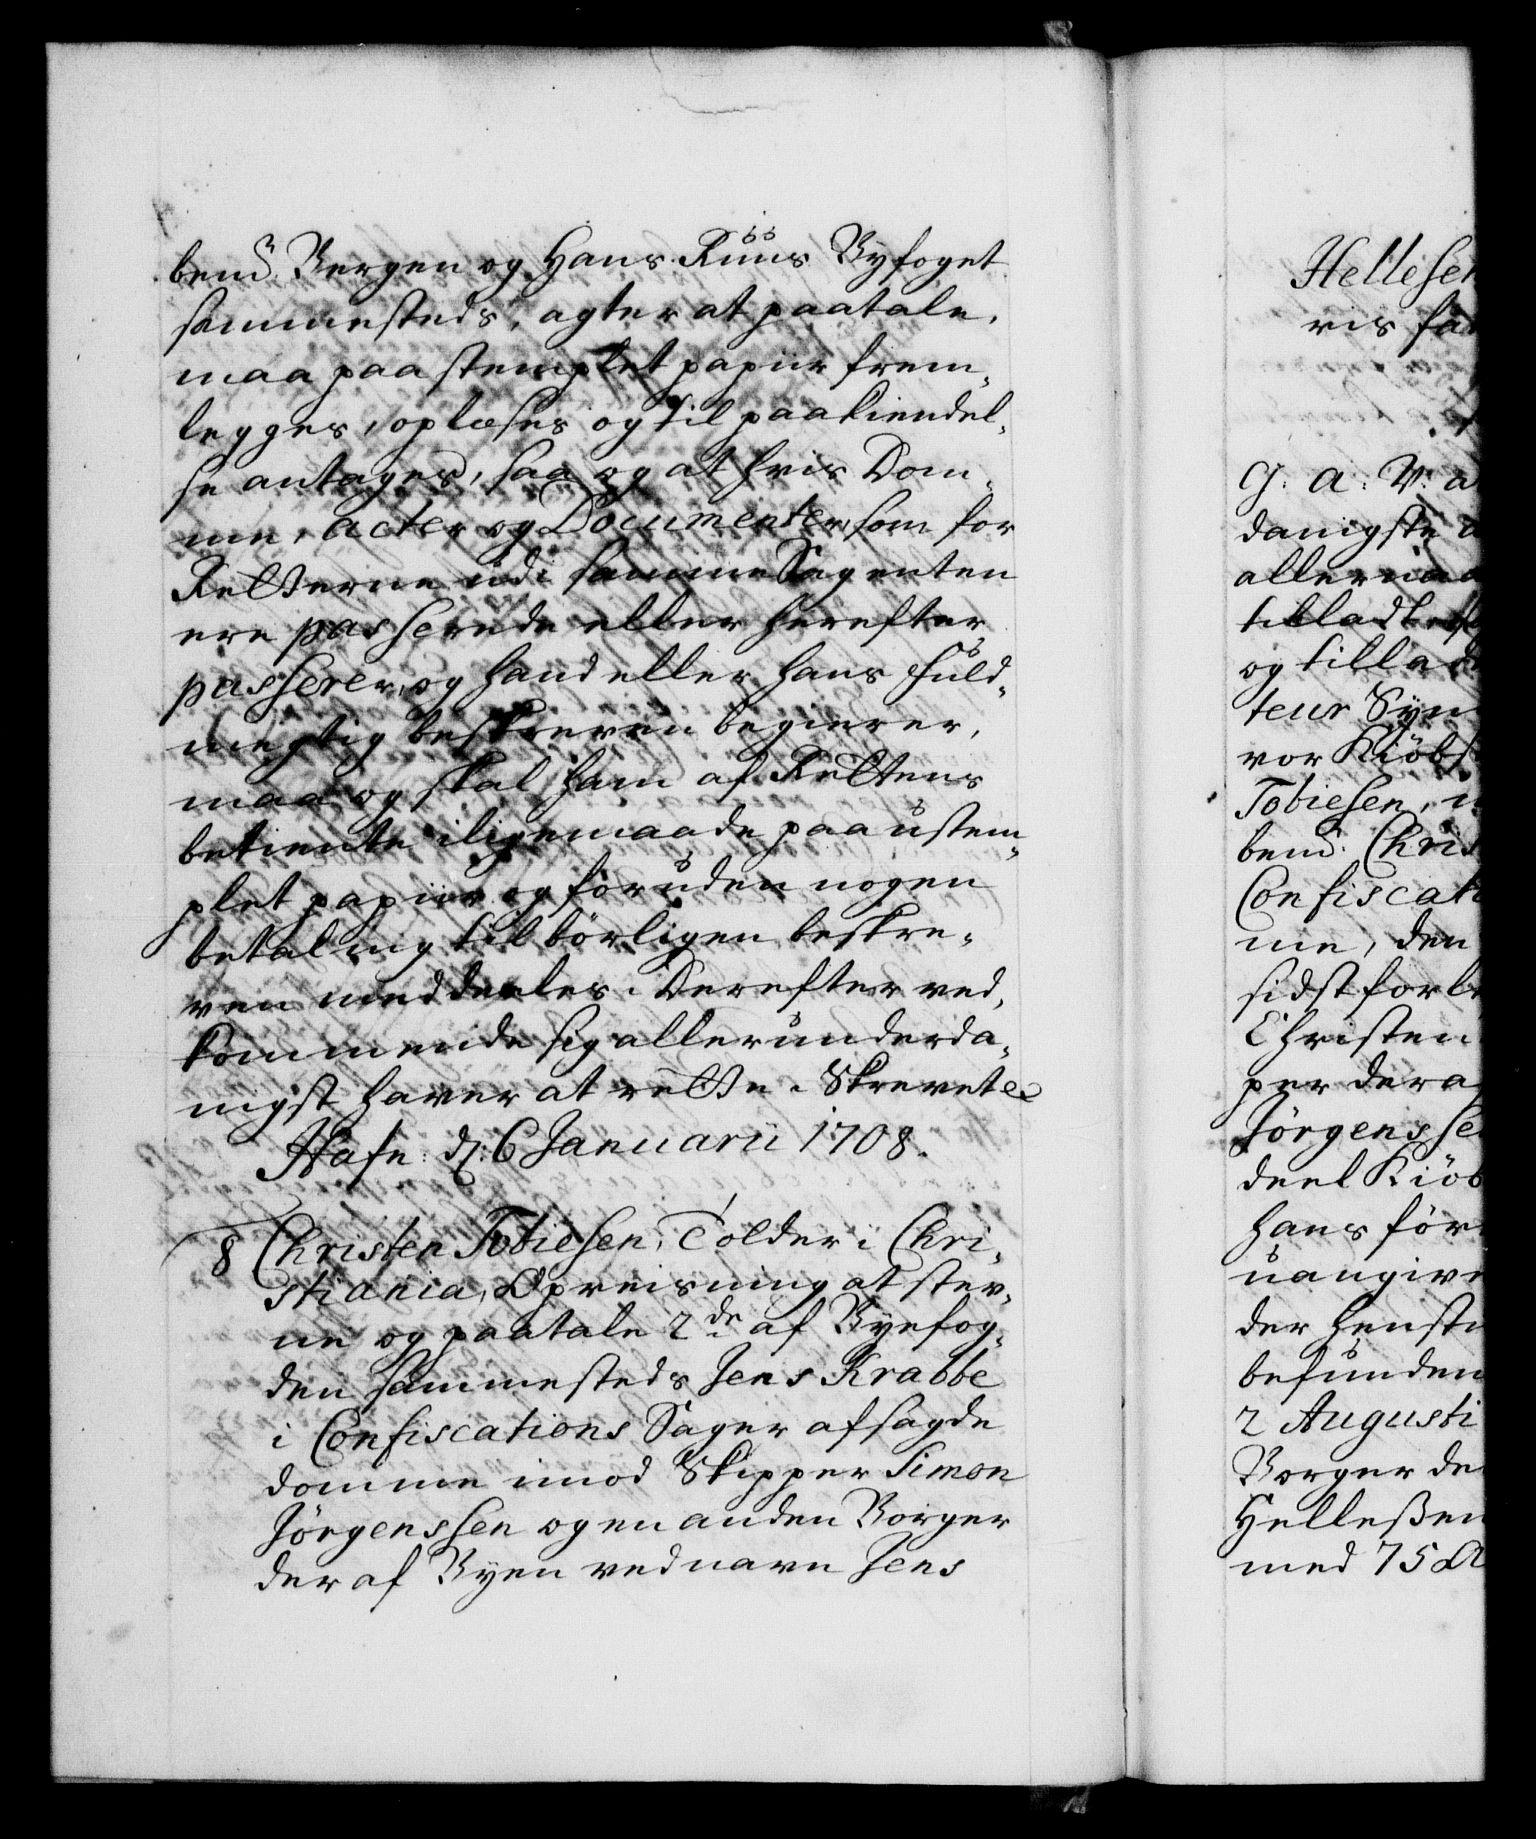 bemd. Bergen og Hans Ruus Byfoget
sammesteds, agter at paatale,
maa paa stemplet papiir frem¬
legges, oplæses og til paakiendel¬
se antages, saa og at hvis Dom¬
me, acter og Documenter, som for
Retterne udi samme Sag enten
ere passerede eller herefter
passerer, og hand eller hans fuld¬
megtig beskreven begierer,
maa og skal ham af Rettens
betiente iligemaade paa ustem¬
plet papiir og foruden nogen
betaling tilbørligen beskre¬
ven meddeeles. Derefter ved¬
kommende sig allerunderda¬
nigst haver at rette. Skrevet etc
Hafn: d: 6 Januarii 1708.
8 Christen Tobiesen, Tolder i Chri¬
stiania, Opreisning at stev¬
ne og paatale 2de af Byefog¬
den sammesteds Jens Krabbe
i Confiscations Sager afsagde
domme imod Skipper Simon
Jörgenssen og en anden Borger
der af Byen ved navn Jens
Hellesen
ris fa
G. A. V. a
danigste a
allernaa
tilladt
og tillad
teur Syn
vor Kiöbst
Tobiesen,
bemd. Chris
Confiscati
me, den
sidst forl
Christen
per der a
Jörgensse
deel Kiöb
hans för
uangive
der hensti
befunden
2 Augusti
Borger de
Helleßen
med 75